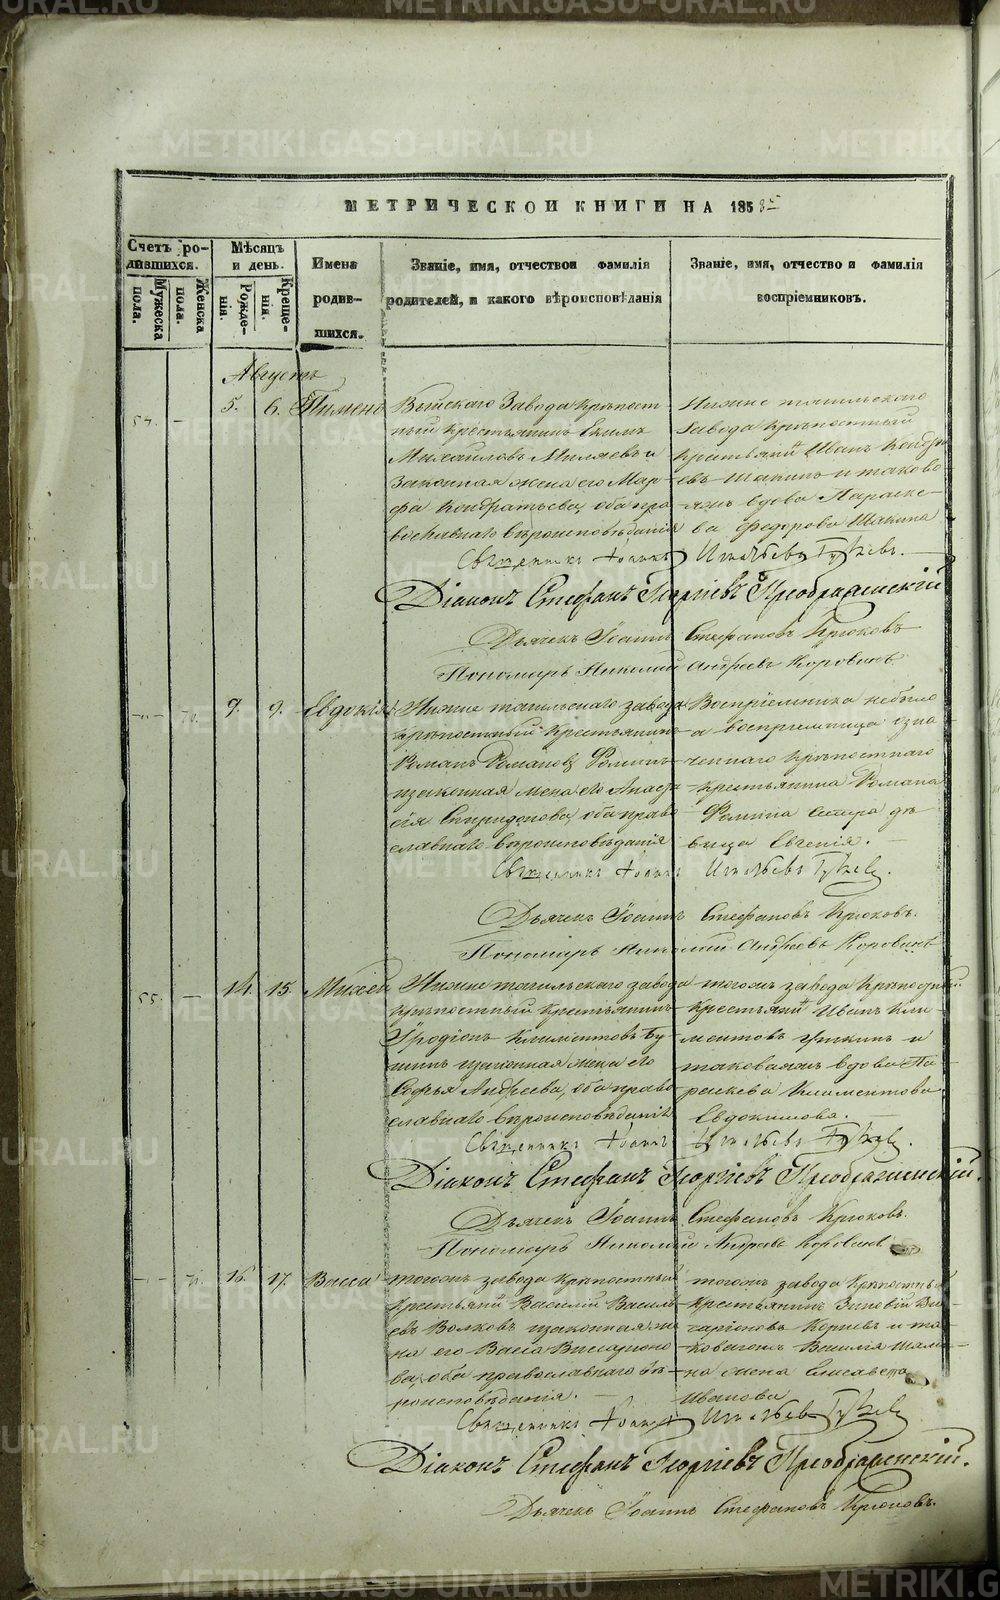 МЕТРИЧЕСКОЙ КНИГИ НА 185
Счетъ ро-
дившихся.
Мужеска пола.
Женска пола.
Мѣсяцъ
и день.
Рожде-
нія.
Креще-
нія.
Имена
родив-
шихся.
Званіе, имя, отчество и фамилія
родителей, и какого вѣроисповѣданія
Званіе, имя, отчество и фамилія
воспріемниковъ.
Августъ
54. — 5. 6. Пименъ
Выйскаго Завода крѣпост
ный крестьянинъ Екимъ
Михайловъ Миляевъ и
законная жена его Мар-
фа Кондратьева, оба пра
вославнаго вѣроисповѣданія
Нижне тагильскаго
завода крѣпостный
Иванъ
Шакинъ и таково
яжъ вдова Параске-
ва Федорова Шакина
Священникъ Іоаннъ Игнатьевъ
Діаконъ Стефанъ Георгіевъ Преображенскій
Дьячекъ Іоаннъ Стефановъ Крюковъ
Пономарь Николай Андреевъ Коровинъ
9. 9. Евдокія
Нижне тагильскаго завода
крѣпостный крестьянинъ
Романъ Романовъ Фоминъ
и законная жена его Анаста
сія Спиридонова, оба право
славнаго вѣроисповѣданія
Воспріемника небыло
а воспріемница озна
ченнаго крѣпостнаго
крестьянина Романа
Фомина сестра дѣ
вица Евгенія.
Священникъ Іоаннъ Игнатьевъ
Дьячекъ Іоаннъ Стефановъ Крюковъ.
Пономарь Николай Андреевъ Коровинъ
55. — 14. 15. Михей
Нижне тагильскаго завода
крѣпостный крестьянинъ
Иродіонъ Климентовъ
и законная жена его
Софья Андреева, оба право
славнаго вѣроисповѣданія
тогожъ завода крѣпостный
Иванъ Кли
ментовъ и
таковаяжъ вдова Па
раскева Климентова
Евдокимова.
Священникъ Іоаннъ Игнатьевъ
Діаконъ Стефанъ Георгіевъ Преображенскій.
Дьячекъ Іоаннъ Стефановъ Крюковъ.
Пономарь Николай Андреевъ Коровинъ
16. 17. Васса
тогожъ завода крѣпостный
Василій Василь
евъ Волковъ и законная же
на его Васса Виссаріоно
ва, оба православнаго вѣ
роисповѣданія.
тогожъ завода крѣпостный
крестьянинъ Зиновій Ви
Корневъ и та
ковагожъ Василія
на жена Елисавета
Иванова
Священникъ Іоаннъ Игнатьевъ
Діаконъ Стефанъ Георгіевъ Преображенскій.
Дьячекъ Іоаннъ Стефановъ Крюковъ.
METRIKI.GASO-URAL.RU